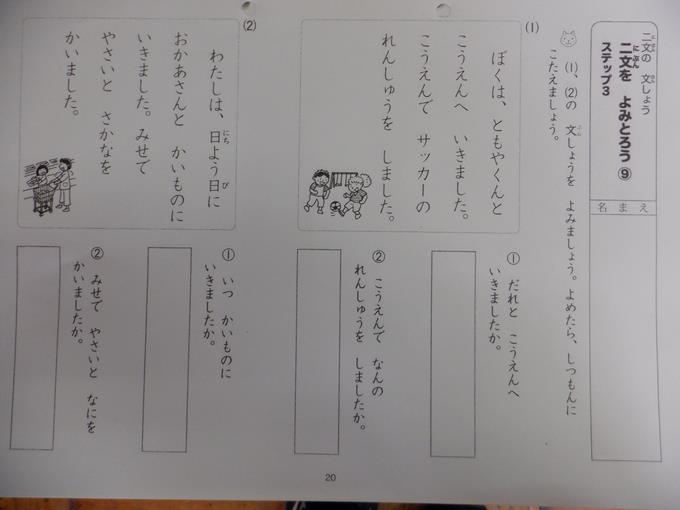 二文の 文しょう
二文を よみとろう ⑨
ステップ3
名まえ
(1)、(2)の 文しょうを よみましょう。よめたら、しつもんに
こたえましょう。
(1)
ぼくは、ともやくんと
こうえんへ いきました。
こうえんで サッカーの
れんしゅうを しました。
① だれと こうえんへ
いきましたか。
② こうえんで なんの
れんしゅうを しましたか。
(2)
わたしは、日よう日に
おかあさんと かいものに
いきました。みせで
やさいと さかなを
かいました。
① いつ かいものに
いきましたか。
② みせで やさいと なにを
かいましたか。
20